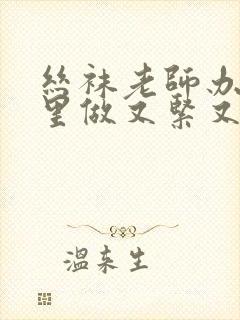 絲袜老師办
里做又緊又
溫来生